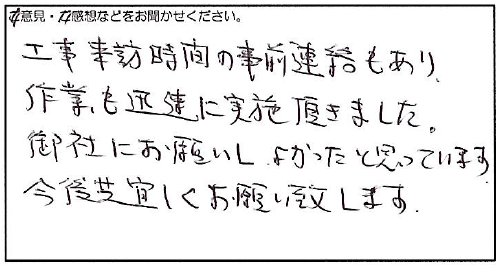 ご意見・ご感想などをお聞かせください。
工事来訪時間の事前連絡もあり、
作業も迅速に実施頂きました。
御社にお願いし よかったと思っています
今後共宜しくお願い致します.